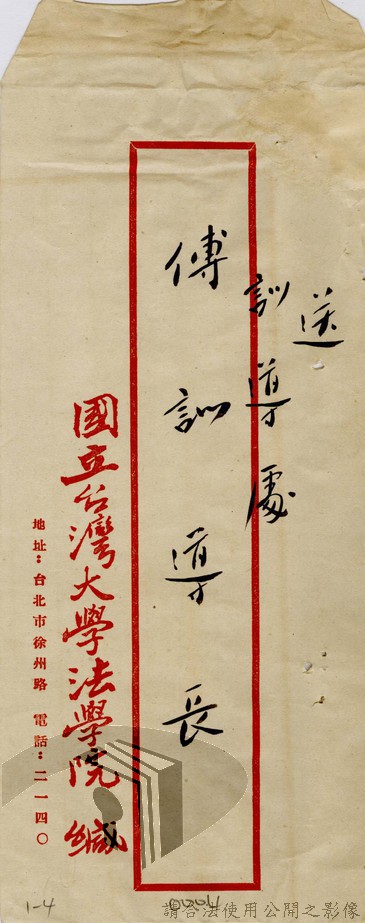 送
訓導處
傅訓導長
國立台灣大學法學院 緘
地址：台北市徐州路 電話：二一四〇
1-4
請合法使用公開之影像